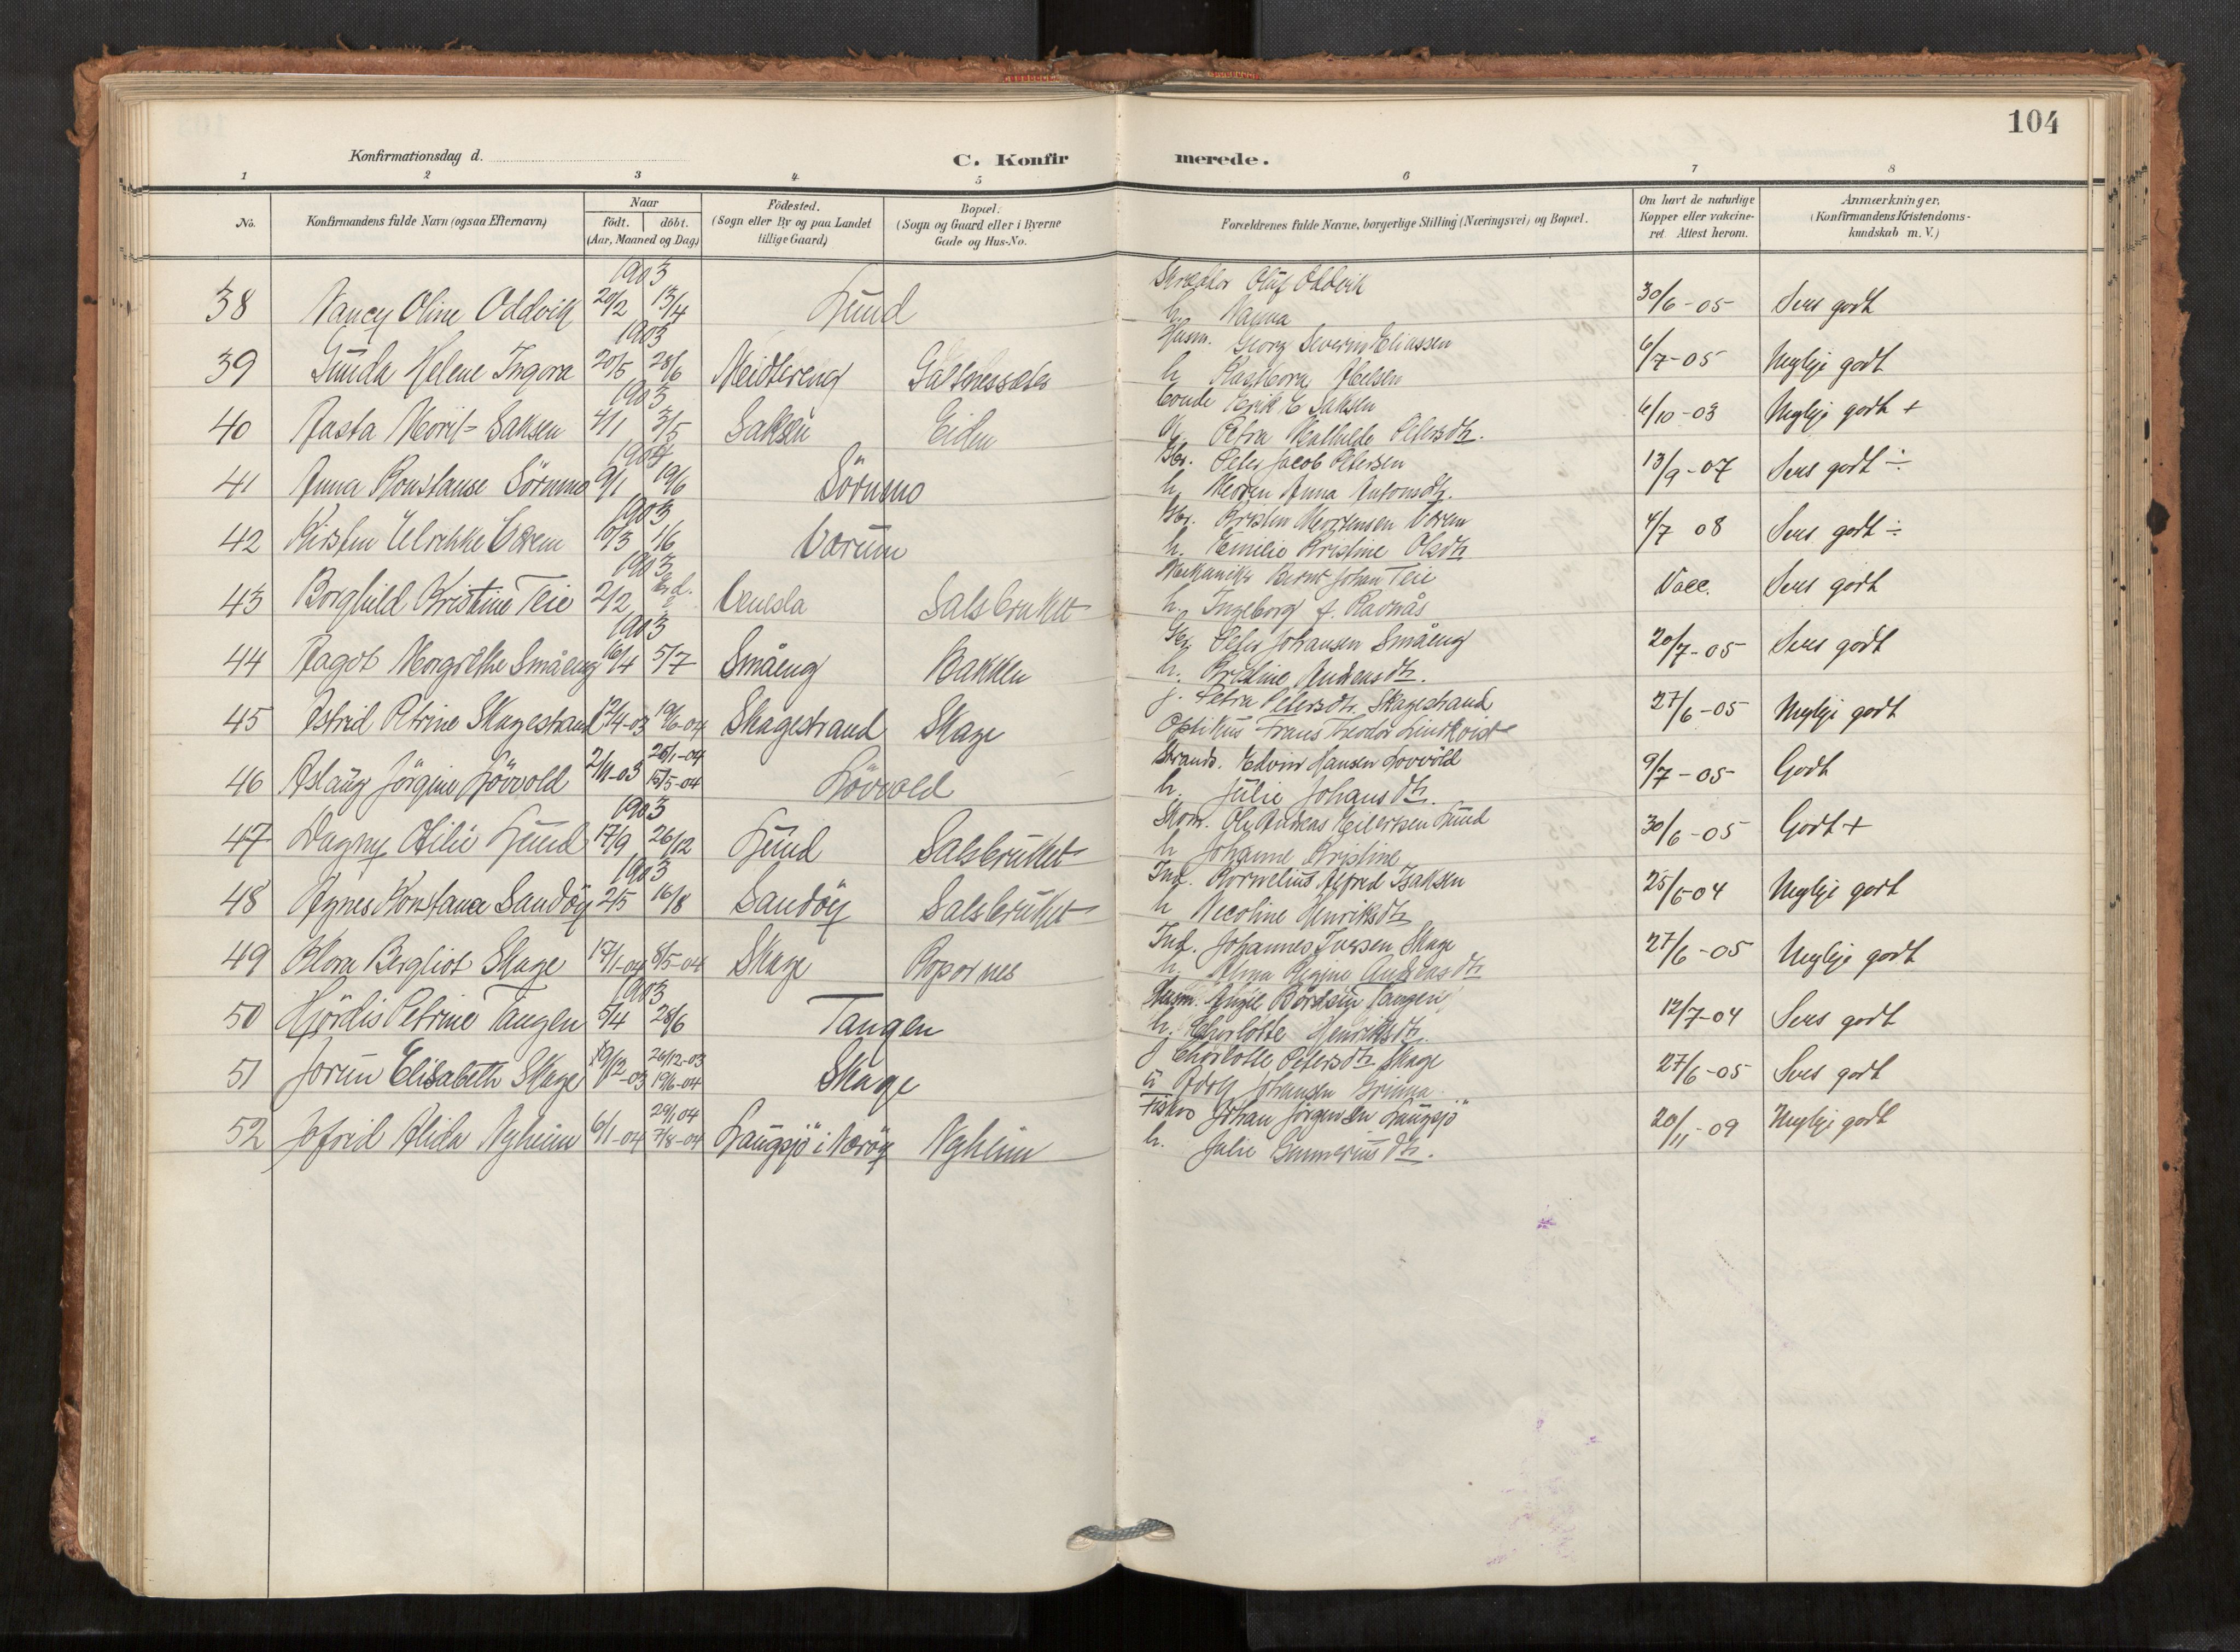 104
Konfirmationsdag d.
C. Konfirmerede.
1 2 3 4 5 6 7 8
No. Konfirmandens fulde Navn (ogsaa Efternavn) Naar födt. döbt. (Aar, Maaned og Dag) Födested. (Sogn eller By og paa Landet tillige Gaard) Bopæl. (Sogn og Gaard eller i Byerne Gade og Hus-No. Forældrenes fulde Navne, borgerlige Stilling (Næringsvei) og Bopæl. Om havt de naturlige Kopper eller vakcineret Attest herom. Anmærkninger, (Konfirmandens Kristendomskundskab m. V.)
1903 Olaf Oddvik
38 Nancy Oline Oddvik 20/2 13/4 Lund h. Nanna 30/6-05 Sers godt
1903 Husm. Georg Severin Eliassen
39 Gunda Helene Ingora 20/5 28/6 Meidtereng h. 6/7-05 Meget godt
1903 Erik E Saksen
40 Aasta Marit Saksen 4/1 3/5 Saksen Eiden Petra Mathilde Petersdtr. 6/10-03 Meget godt +
Gbr. Peter Jacob Petersen
41 Anna Konstanse Sörnmo 9/1 19/6 Sörnmo h. Anna Antonsdtr. 13/9-07 Sers godt ÷
1903 Gbr. Mortensen
42 Kirsten Ulrikke 10/3 1/6 h. Emilie Kristine Olsdtr 4/7 08 Sers godt ÷
1903 Mekaniker Bernt Johan Teie
43 Borghild Kristine Teie 2/2 Venesla Salsbruket h. Ingeborg f. Ravnås Vacc. Sers godt
1903 Gbr. Peter Johansen Småeng
44 Ragot Margrethe Småeng 16/4 5/7 Småeng Bakken h. Kristine Andreasdtr. 20/7-05 Sers godt
p. Petra Petersdtr. Skagestrand
45 Astrid Petrine Skagestrand 12/4-03 19/6-04 Skagestrand Skage Optikus Frans Theodor Lindkvist 27/6-05 Meget godt
25/1-04 Strands. Edvin Hansen Lövvold
46 Aslaug Jörgine Lövvold 2/11-03 15/5-04 Lövvold h. Julie Johansdtr. 9/7-05 Godt
1903 Skom. Ole Andreas Eilertsen Lund
47 Dagny Otilie Lund 17/9 26/12 Lund Salsbruket h Johanne Kristine 30/6-05 Godt +
1903 Ind. Kornelius Alfred Isaksen
48 Agnes Konstance Sandöy 2/5 16/8 Sandöy Salsbruket h Nicoline Henriksdtr 25/6-04 Meget godt
Ind. Johannes Iversen Skage
49 Klara Bergliot Skage 17/1-04 8/5-04 Skage h. Anna Regine Andreasdtr 27/6-05 Meget godt
1903 Husm. Bårdsen Tangen
50 Hjördis Petrine Tangen 5/4 28/6 Tangen h. Charlotte Henriksdtr. 12/7-04 Sers godt
26/12-03 p Charlotte Petersdtr Skage
51 Jorun Elisabeth Skage 19/12-03 19/6-04 Skage u Adolf Johansen 27/6-05 Sers godt
29/1 04 Fisker Johan Jörgensen Laugsjö
52 Jofrid Alida Nyheim 6/1-04 7/8-04 Laugsjö i Næröy Nyheim h. Julie Gunneriusdtr. 20/11-09 Meget godt